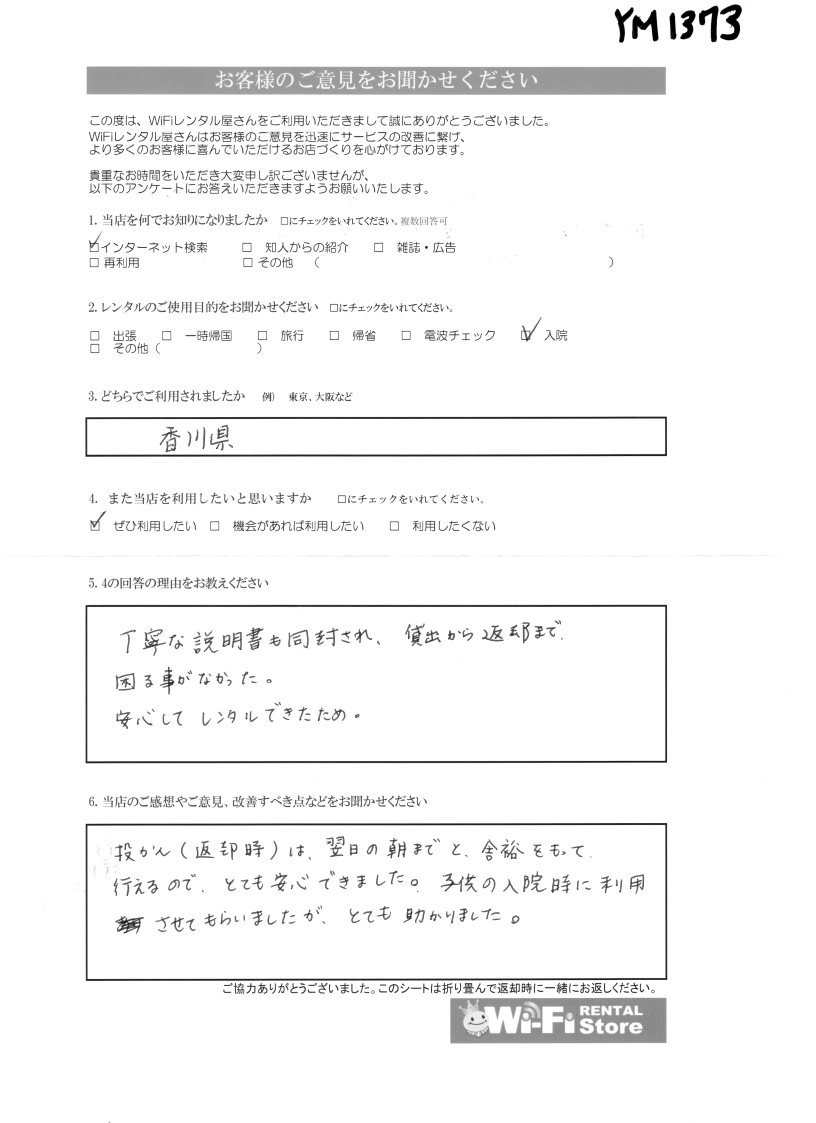 YM1373
お客様のご意見をお聞かせください
この度は、WiFiレンタル屋さんをご利用いただきまして誠にありがとうございました。
WiFiレンタル屋さんはお客様のご意見を迅速にサービスの改善に繋げ、
より多くのお客様に喜んでいただけるお店づくりを心がけております。
貴重なお時間をいただき大変申し訳ございませんが、
以下のアンケートにお答えいただきますようお願いいたします。
1. 当店を何でお知りになりましたか □にチェックをいれてください。複数回答可
☑インターネット検索 □ 知人からの紹介 □ 雑誌・広告
□ 再利用 □ その他 ( )
2. レンタルのご使用目的をお聞かせください □にチェックをいれてください。
□ 出張 □ 一時帰国 □ 旅行 □ 帰省 □ 電波チェック ☑ 入院
□ その他 ( )
3. どちらでご利用されましたか 例) 東京、大阪など
香川県
4. また当店を利用したいと思いますか □にチェックをいれてください。
☑ ぜひ利用したい □ 機会があれば利用したい □ 利用したくない
5. 4の回答の理由をお教えください
丁寧な説明書も同封され、貸出から返却まで
困る事がなかった。
安心して レンタルできたため。
6. 当店のご感想やご意見、改善すべき点などをお聞かせください
投かん(返却時)は、翌日の朝までと、余裕をもって
行えるので、とても安心できました。子供の入院時に利用
させてもらいましたが、とても助かりました。
ご協力ありがとうございました。このシートは折り畳んで返却時に一緒にお返しください。
Wi-Fi RENTAL Store